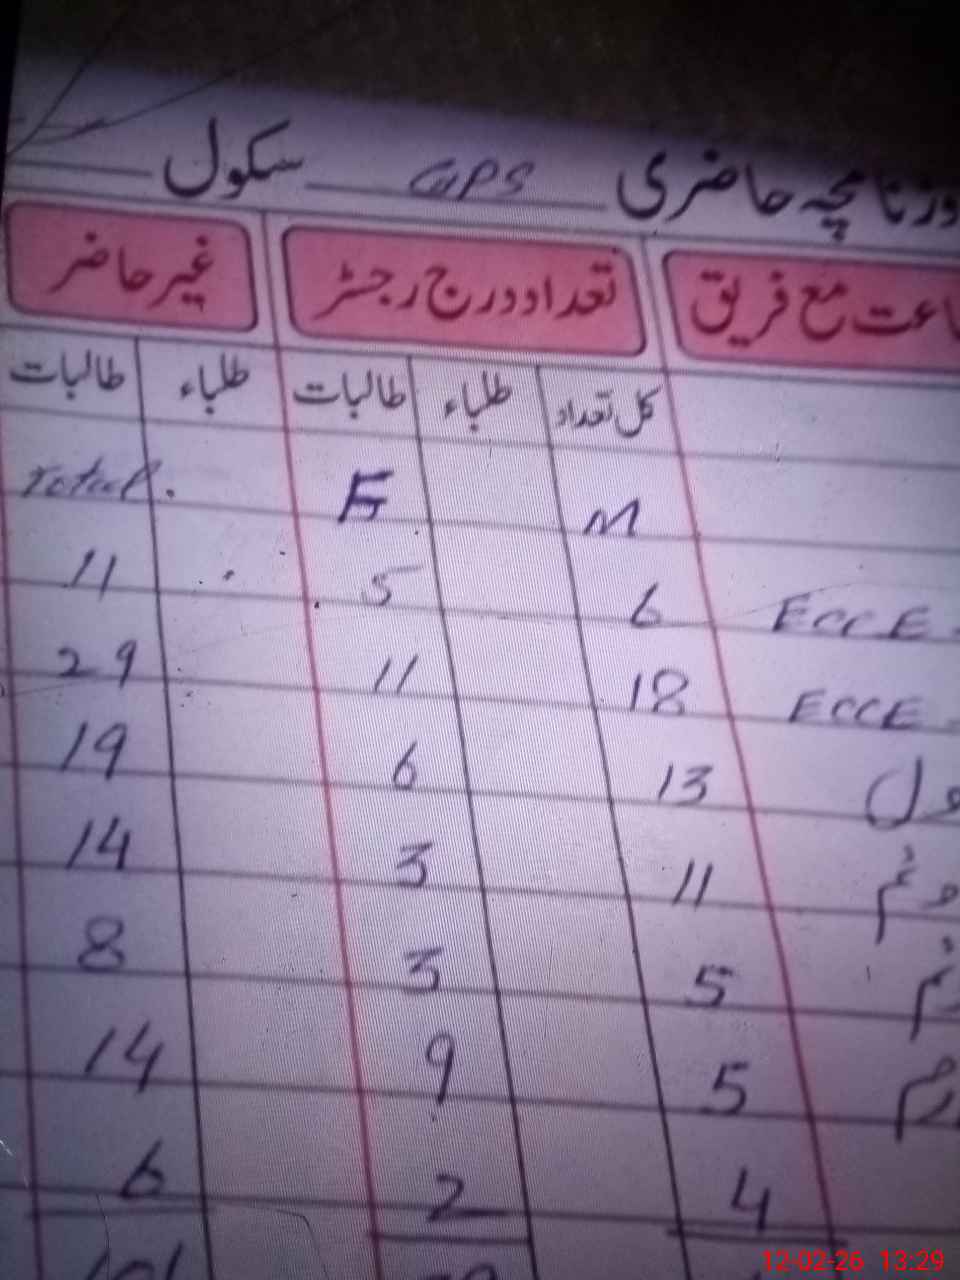 روزنامچہ حاضری GPS سکول
تعداد درج رجسٹر غیر حاضر
کل تعداد طلباء طالبات طلباء طالبات
M F Total.
ECCE - 6 5 11
ECCE - 18 11 29
13 6 19
11 3 14
5 3 8
5 9 14
4 2 6
12-02-26 13:29